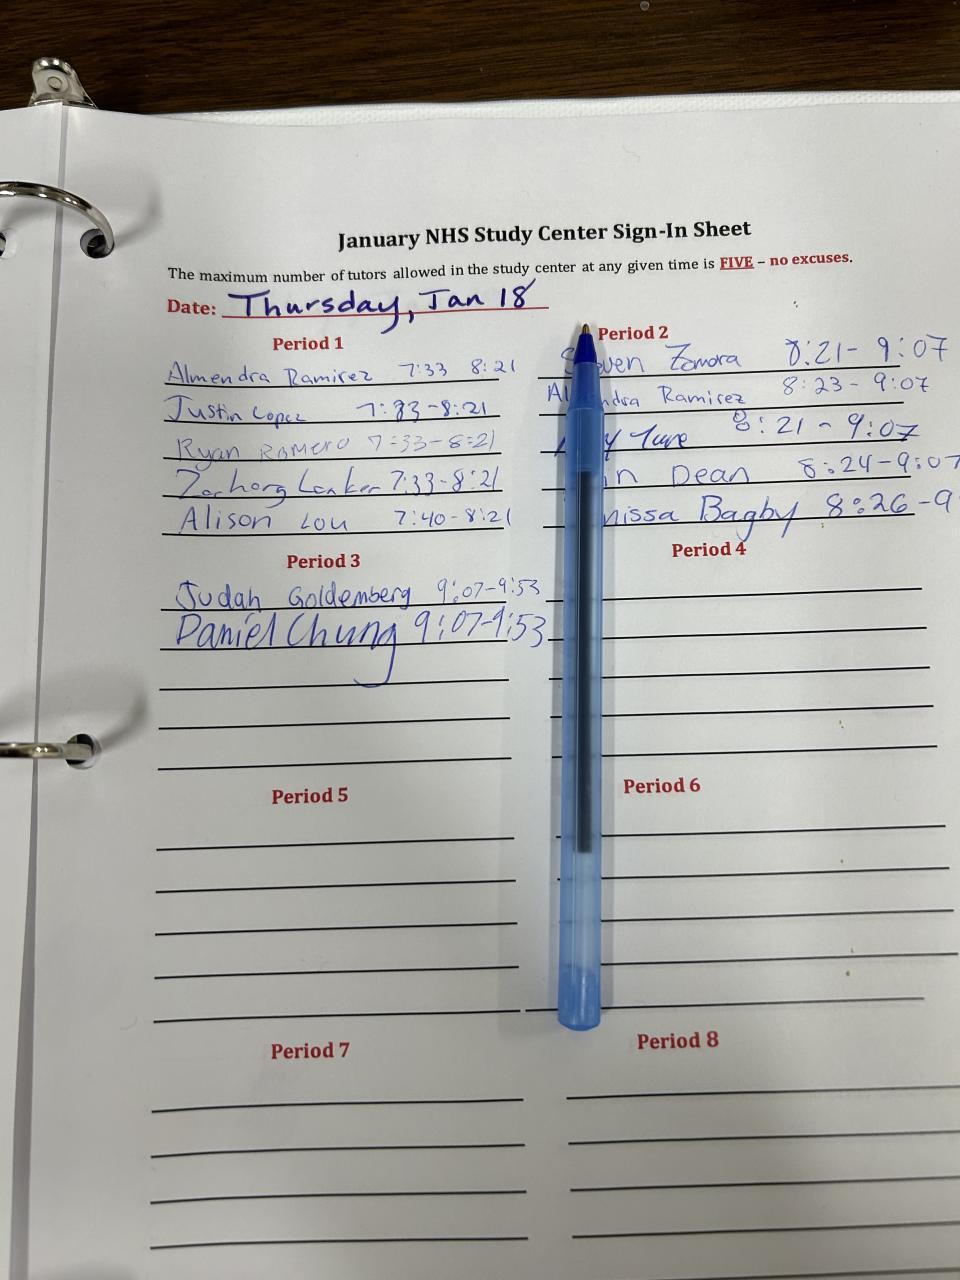 January NHS Study Center Sign-In Sheet
The maximum number of tutors allowed in the study center at any given time is FIVE – no excuses.
Date: Thursday, Jan 18
Period 1
Almendra Ramirez 7:33 8:21
Justin Lopez 7:33-8:21
Ryan Romero 7:33-8:21
7:33-8:21
Alison Lou 7:40-8:21
Period 2
Zamora 8:21- 9:07
Ramirez 8:23-9:07
8:21-9:07
Dean 8:24-9:07
Bagby 8:26-9
Period 3
Judah Goldemberg 9:07-9:53
Daniel Chung 9:07-9:53
Period 4
Period 5
Period 6
Period 7
Period 8